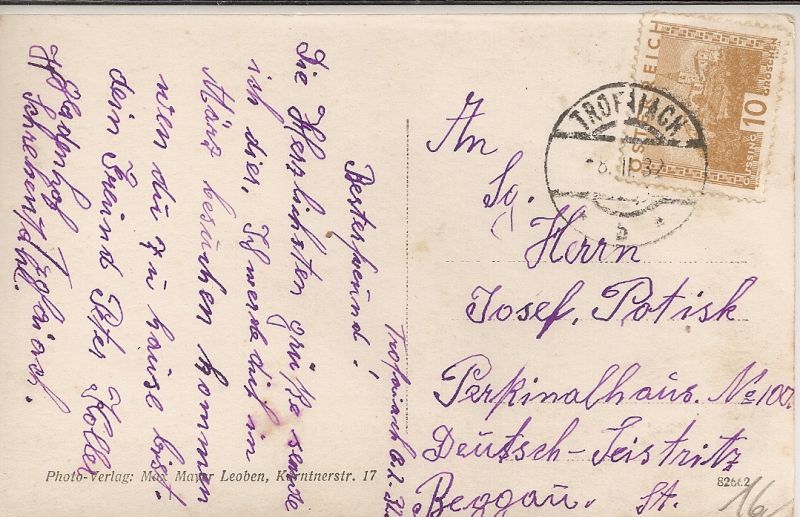 Trofaiach
Besterfreund!
Die Herzlichsten grüße sende
ich dier, Ich werde dich im
März besuchen kommen
wen du zu hause bist.
dein Freind Peter Koller
Trofaiach.
An
Sg. Herrn
Josef. Potisk
Perkinalhaus. No 107
Deutsch-Feistritz
Beggau. St.
TROFAIACH
b
REICH
10
GROSCHEN
GÜSSING
Photo-Verlag: Max Mayer Leoben, Kärntnerstr. 17
82662
16